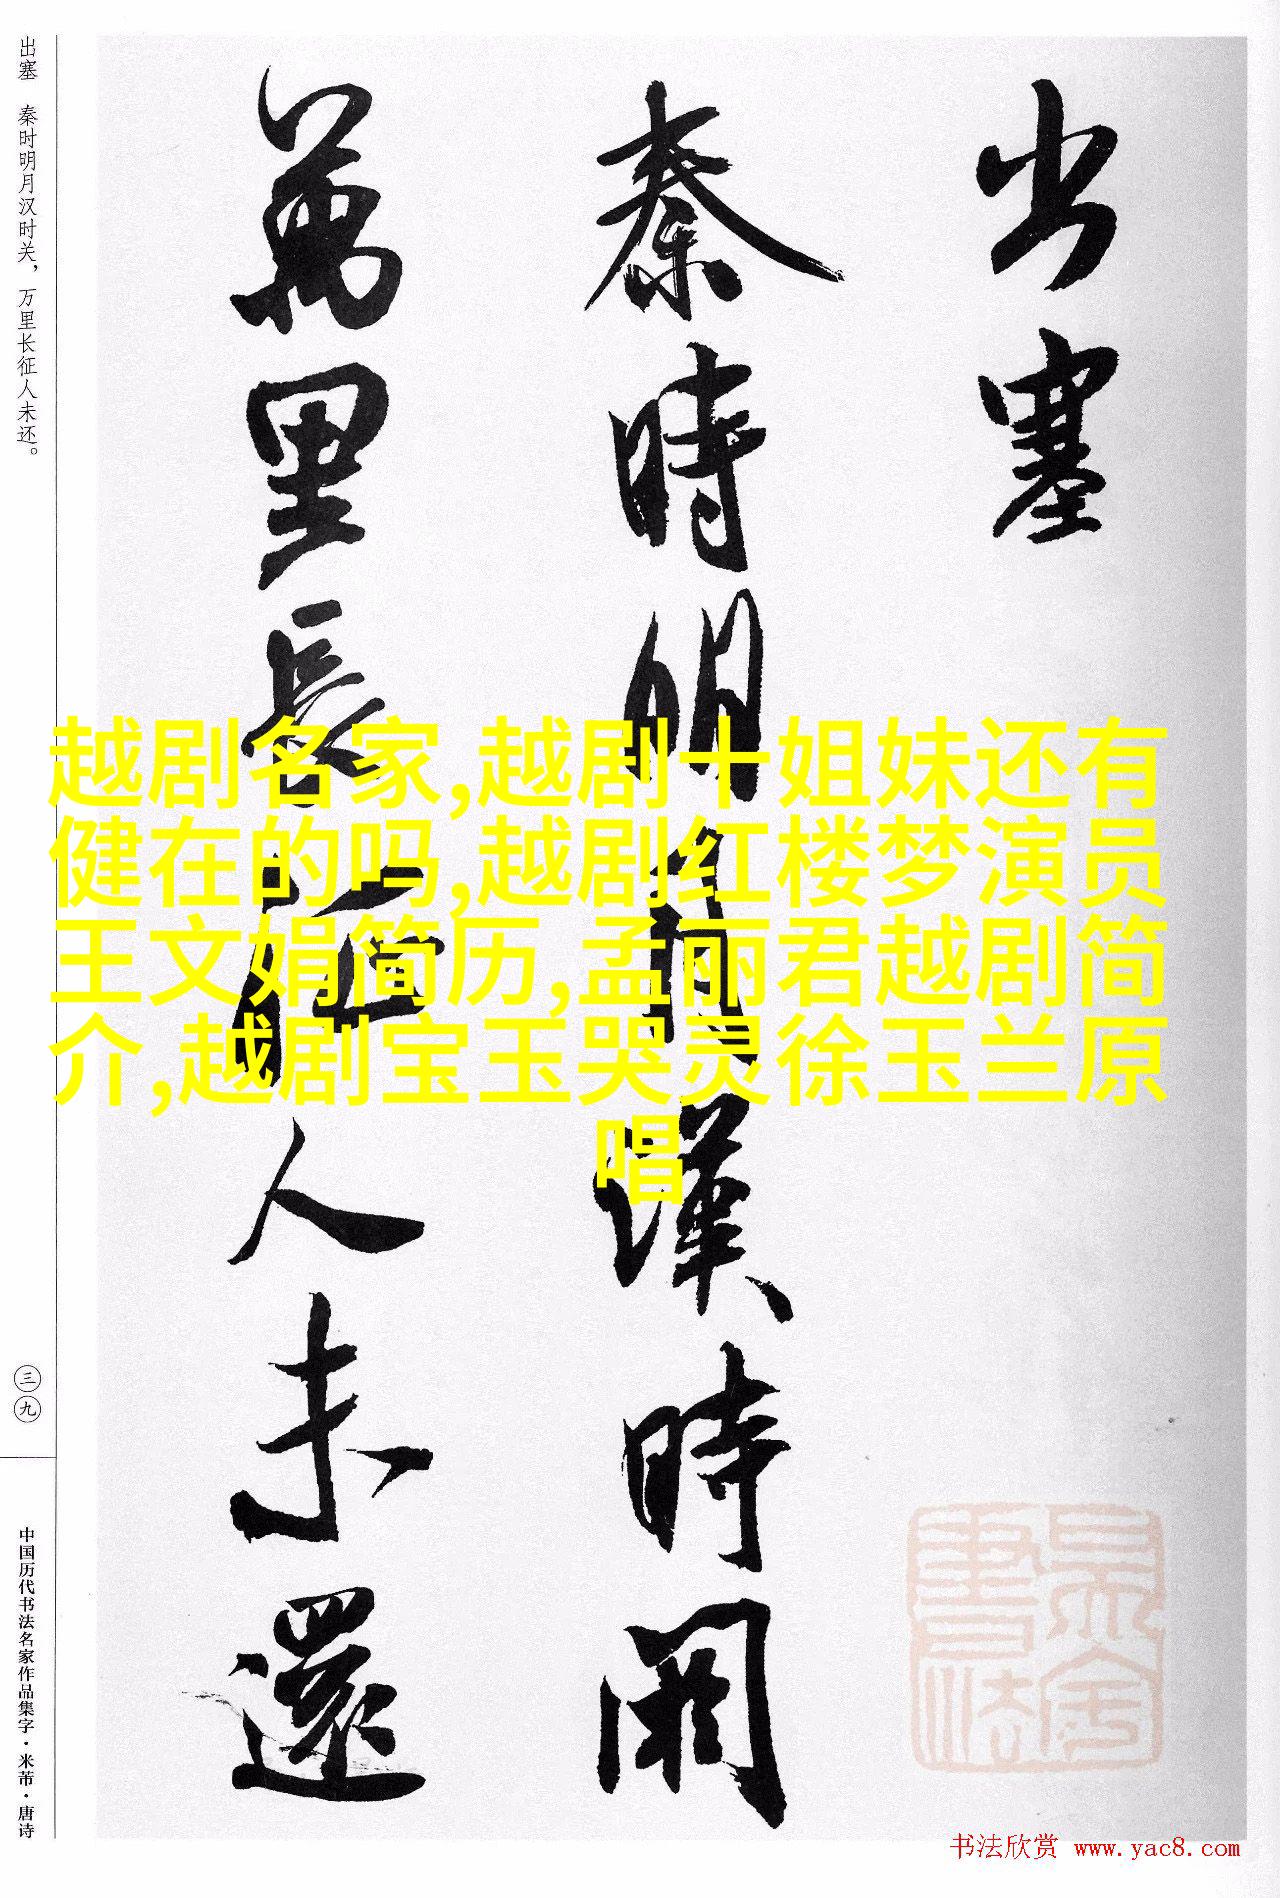 出塞 秦时明月汉时关，万里长征人未还。
出塞
秦時明月漢時関
萬里長征人未還
越剧名家,越剧十姐妹还有
健在的吗,越剧红楼梦演员
王文娟简历,孟丽君越剧简
介,越剧宝玉哭灵徐玉兰原
唱
三九
中国历代书法名家作品集字·米芾·唐诗
书法欣赏 www.yac8.com